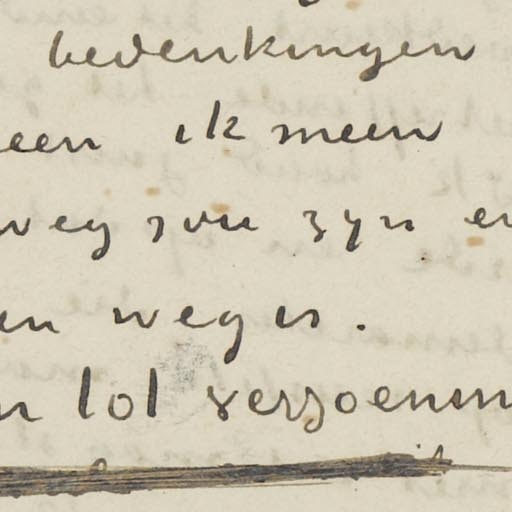 bedenkingen
een ik meen
weg zou zyn en
en weg is.
n tot verzoenin